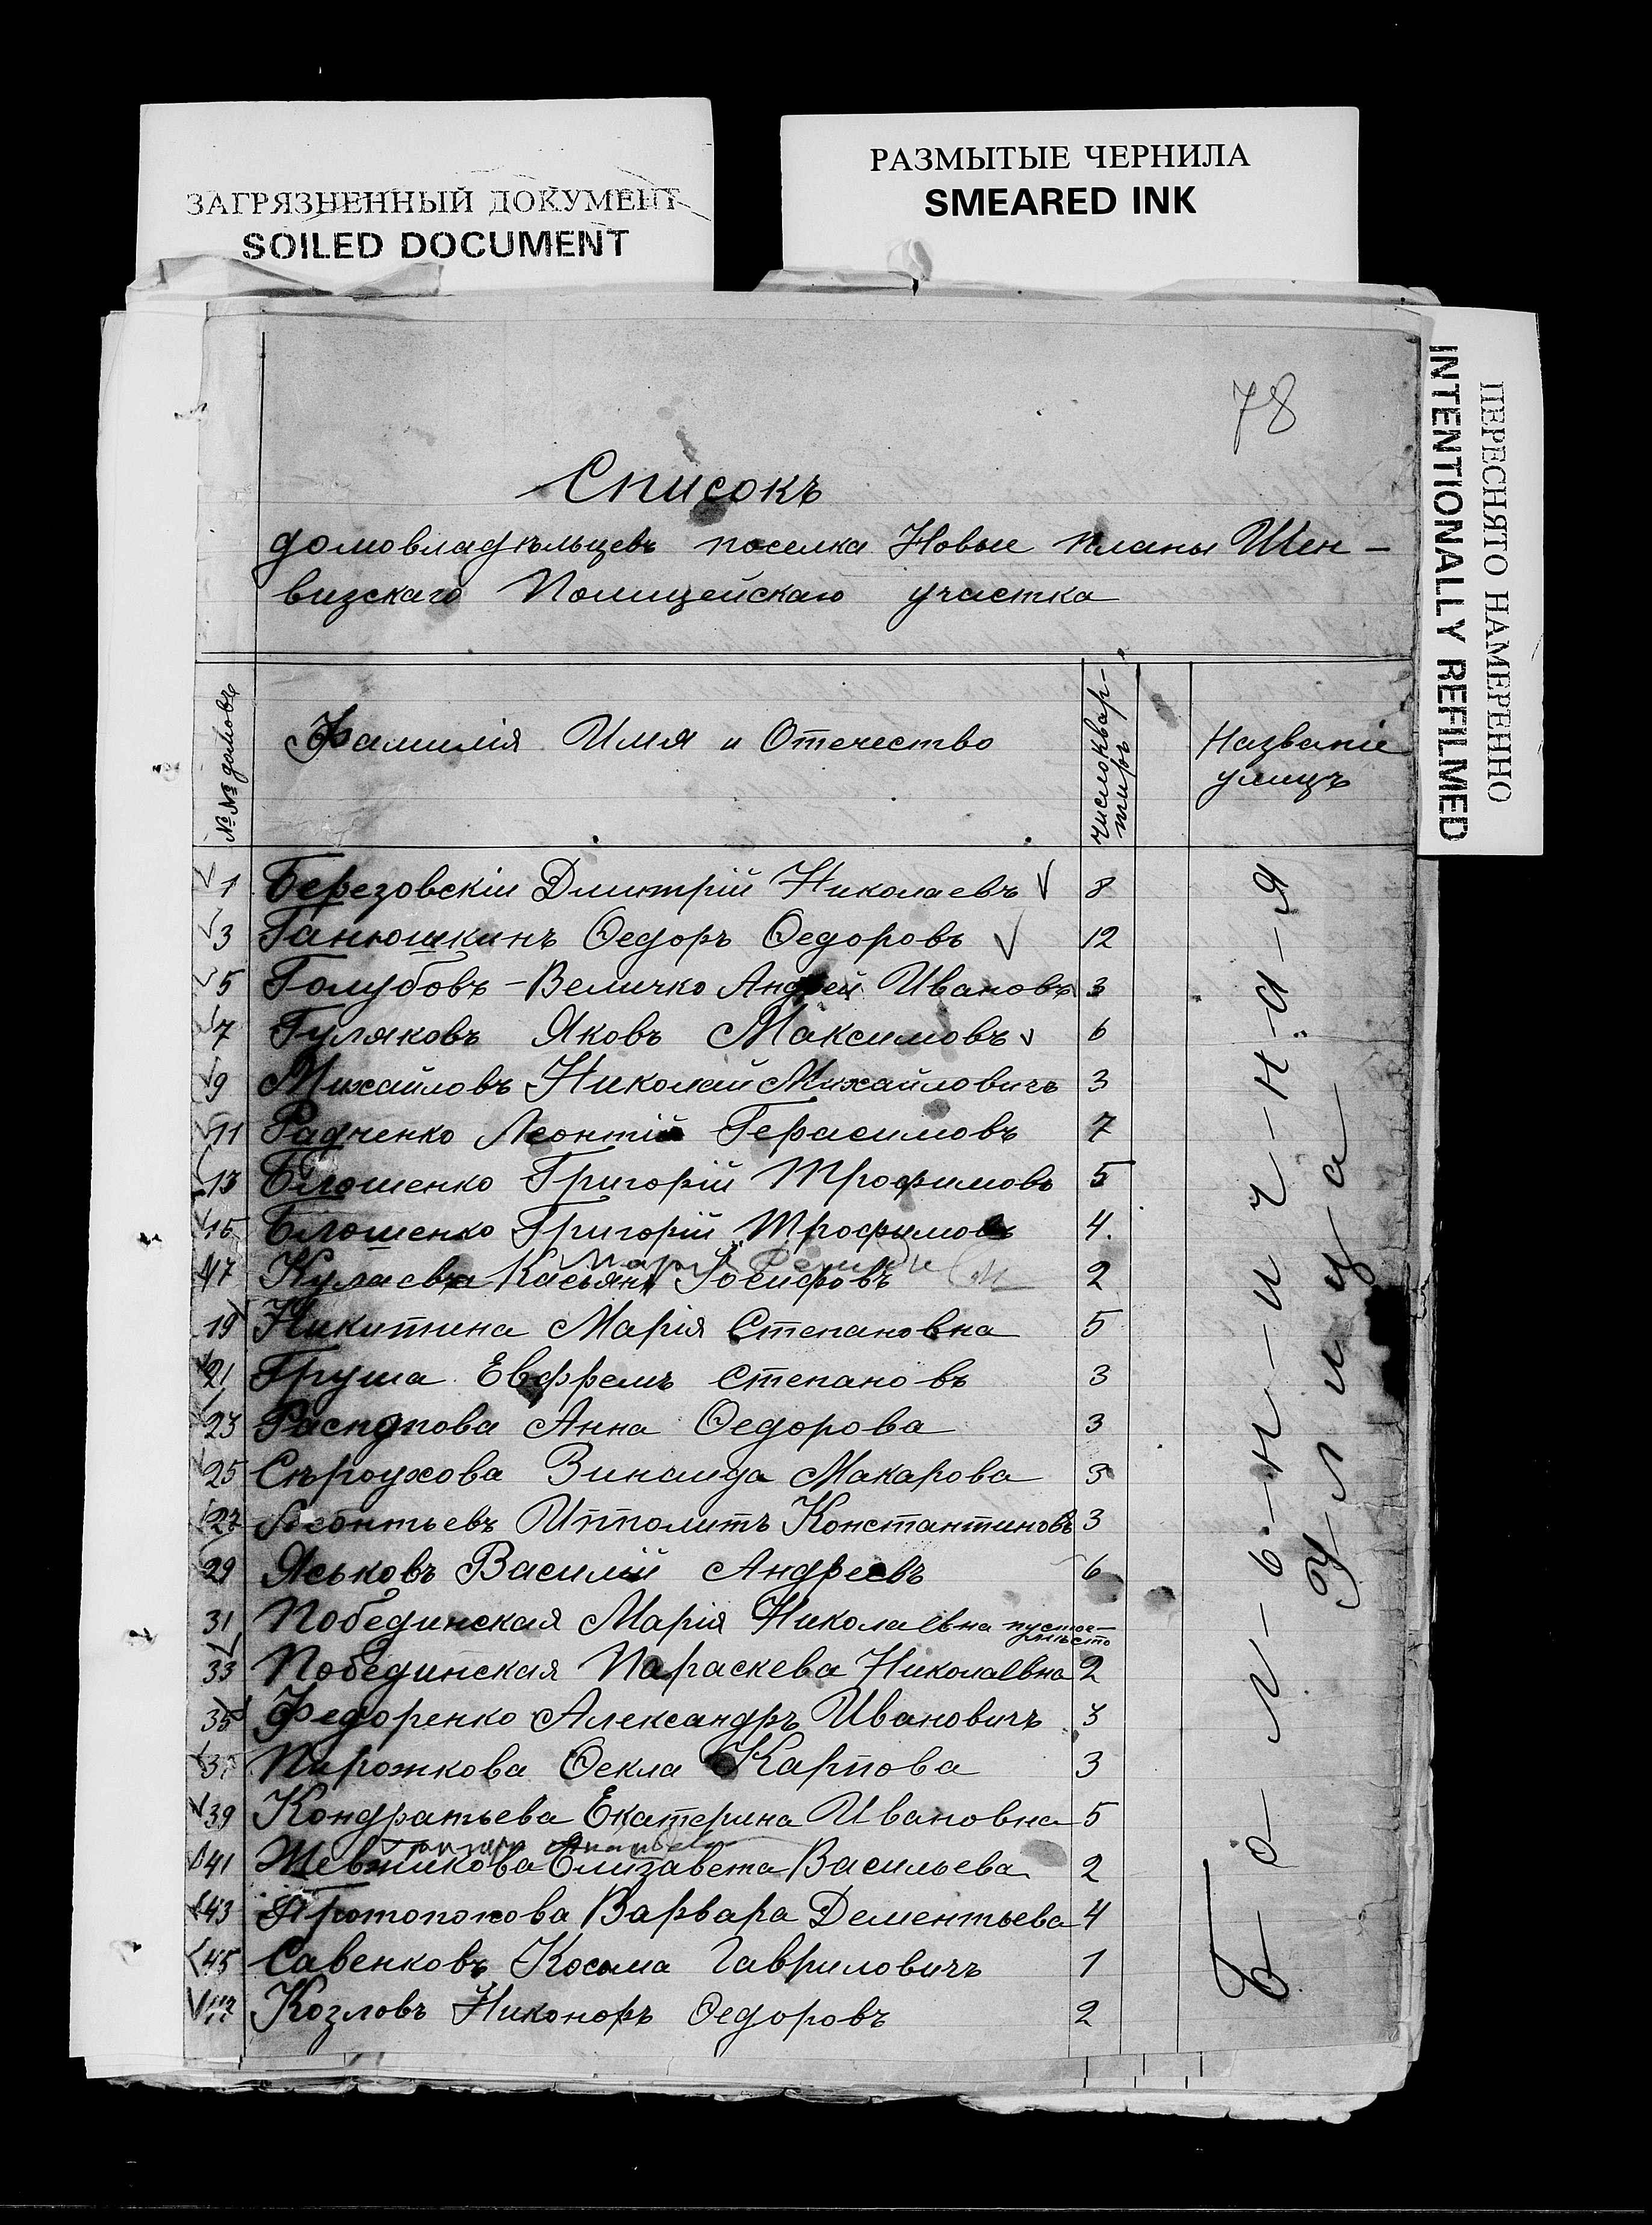 ЗАГРЯЗНЕННЫЙ ДОКУМЕНТ
SOILED DOCUMENT
РАЗМЫТЫЕ ЧЕРНИЛА
SMEARED INK
ПЕРЕСНЯТО НАМЕРЕННО
INTENTIONALLY REFILMED
78
Списокъ
домовладѣльцевъ поселка Новые планы Шен-
визскаго Полицейскаго участка
№№ домовъ
Фамилія Имя и Отечество
число квар-
тиръ
Названіе
улицъ
1 Березовскій Дмитрій Николаевъ 8
3 Ганюшкинъ Ѳедоръ Ѳедоровъ 12
5 Голубовъ-Величко Андрей Ивановъ 3
7 Гуляковъ Яковъ Максимовъ 6
9 Михайловъ Николай Михайловичъ 3
11 Радченко Леонтій Герасимовъ 7
13 Блошенко Григорій Трофимовъ 5
15 Блошенко Григорій Трофимовъ 4.
17 Касьянъ Іосифовъ 2
19 Никитина Марія Степановна 5
21 Груша Евфремъ Степановъ 3
23 Распопова Анна Ѳедорова 3
25 Сѣроухова Зинаида Макарова 3
27 Леонтьевъ Ипполитъ Константиновъ 3
29 Яськовъ Василій Андреевъ 6
31 Побединская Марія Николаевна пустое-
мѣсто
33 Побединская Параскева Николаевна 2
35 Федоренко Александръ Ивановичъ 3
37 Пирожкова Ѳекла Карпова 3
39 Кондратьева Екатерина Ивановна 5
41 Елизавета Васильева 2
43 Протопопова Варвара Дементьева 4
45 Савенковъ Косьма Гавриловичъ 1
47 Козловъ Никоноръ Ѳедоровъ 2
Б-о-л-ь-н-и-ч-н-а-я
Улица